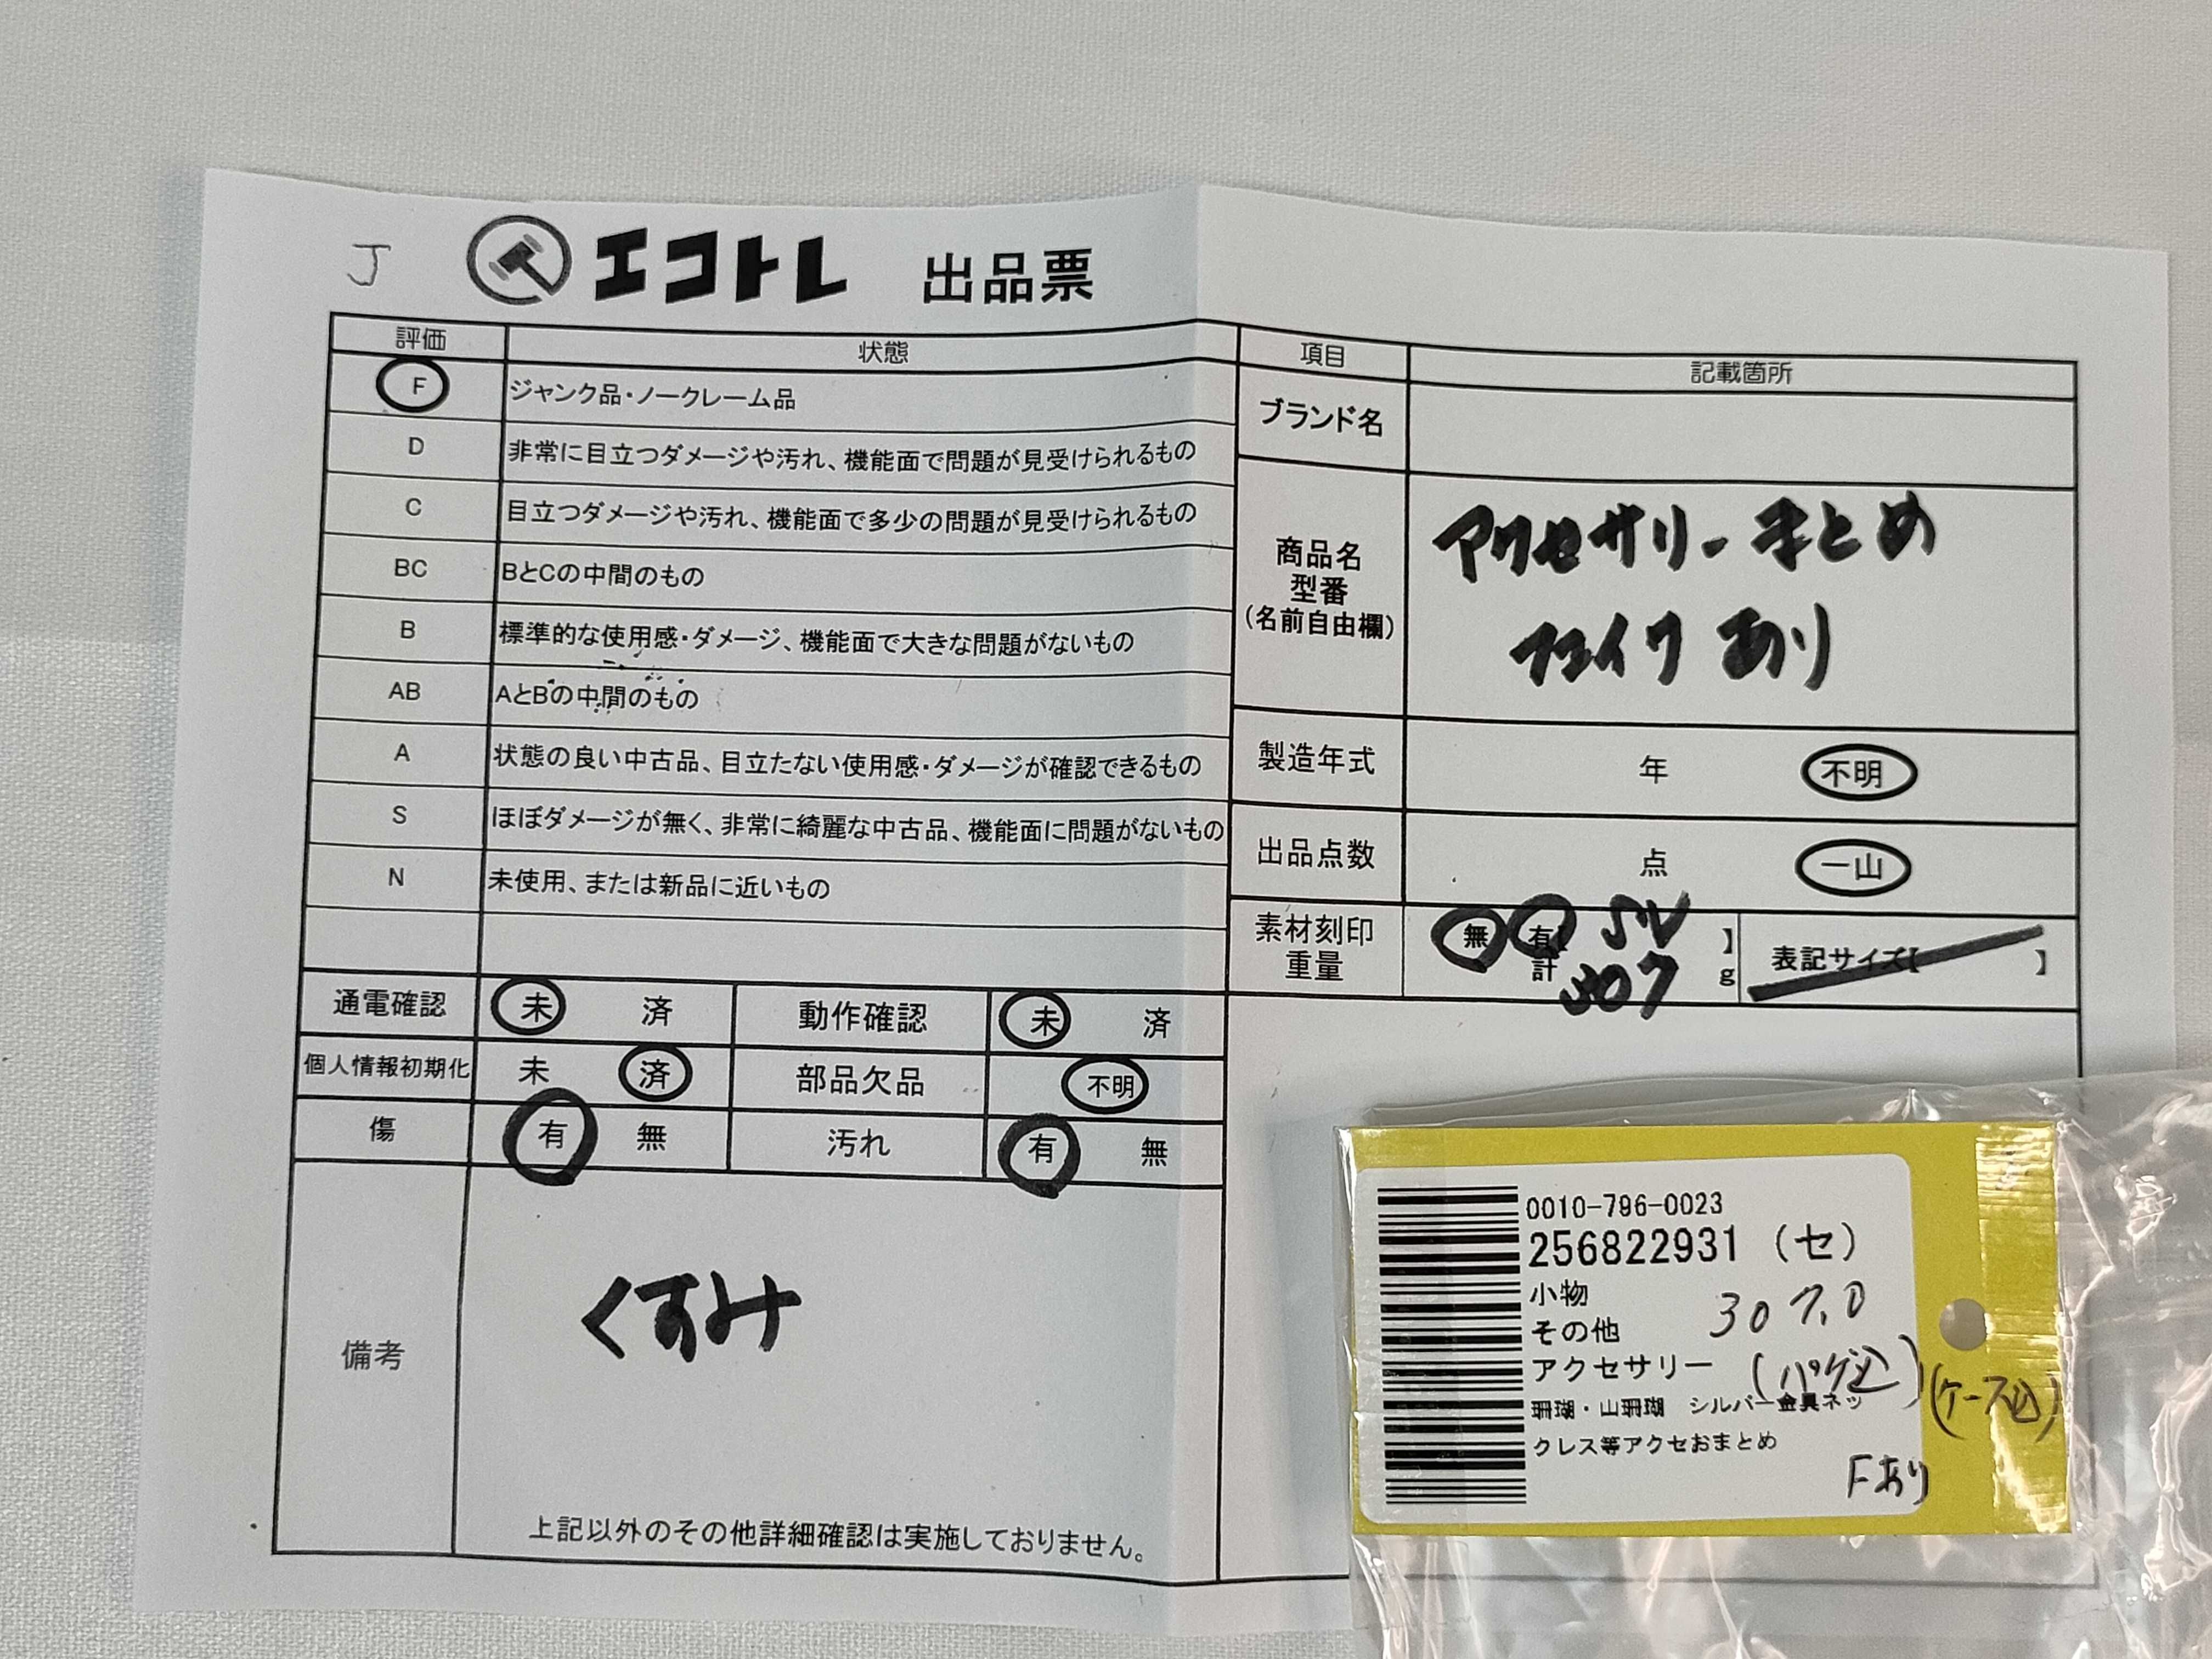 J エコトレ 出品票
評価 状態
F ジャンク品・ノークレーム品
D 非常に目立つダメージや汚れ、機能面で問題が見受けられるもの
C 目立つダメージや汚れ、機能面で多少の問題が見受けられるもの
BC BとCの中間のもの
B 標準的な使用感・ダメージ、機能面で大きな問題がないもの
AB AとBの中間のもの
A 状態の良い中古品、目立たない使用感・ダメージが確認できるもの
S ほぼダメージが無く、非常に綺麗な中古品、機能面に問題がないもの
N 未使用、または新品に近いもの
通電確認 未 済 動作確認 未 済
個人情報初期化 未 済 部品欠品 不明
傷 有 無 汚れ 有 無
備考 くすみ
上記以外のその他詳細確認は実施しておりません。
項目 記載箇所
ブランド名
商品名
型番
(名前自由欄)
アクセサリーまとめ
フェイクあり
製造年式 年 不明
出品点数 点 一山
素材刻印 無 有【 SV 】
重量 計 307 g
表記サイズ【 】
0010-796-0023
256822931 (セ)
小物
その他 307.0
アクセサリー (パケ込) (ケース込)
珊瑚・山珊瑚 シルバー金具ネッ
クレス等アクセおまとめ
Fあり